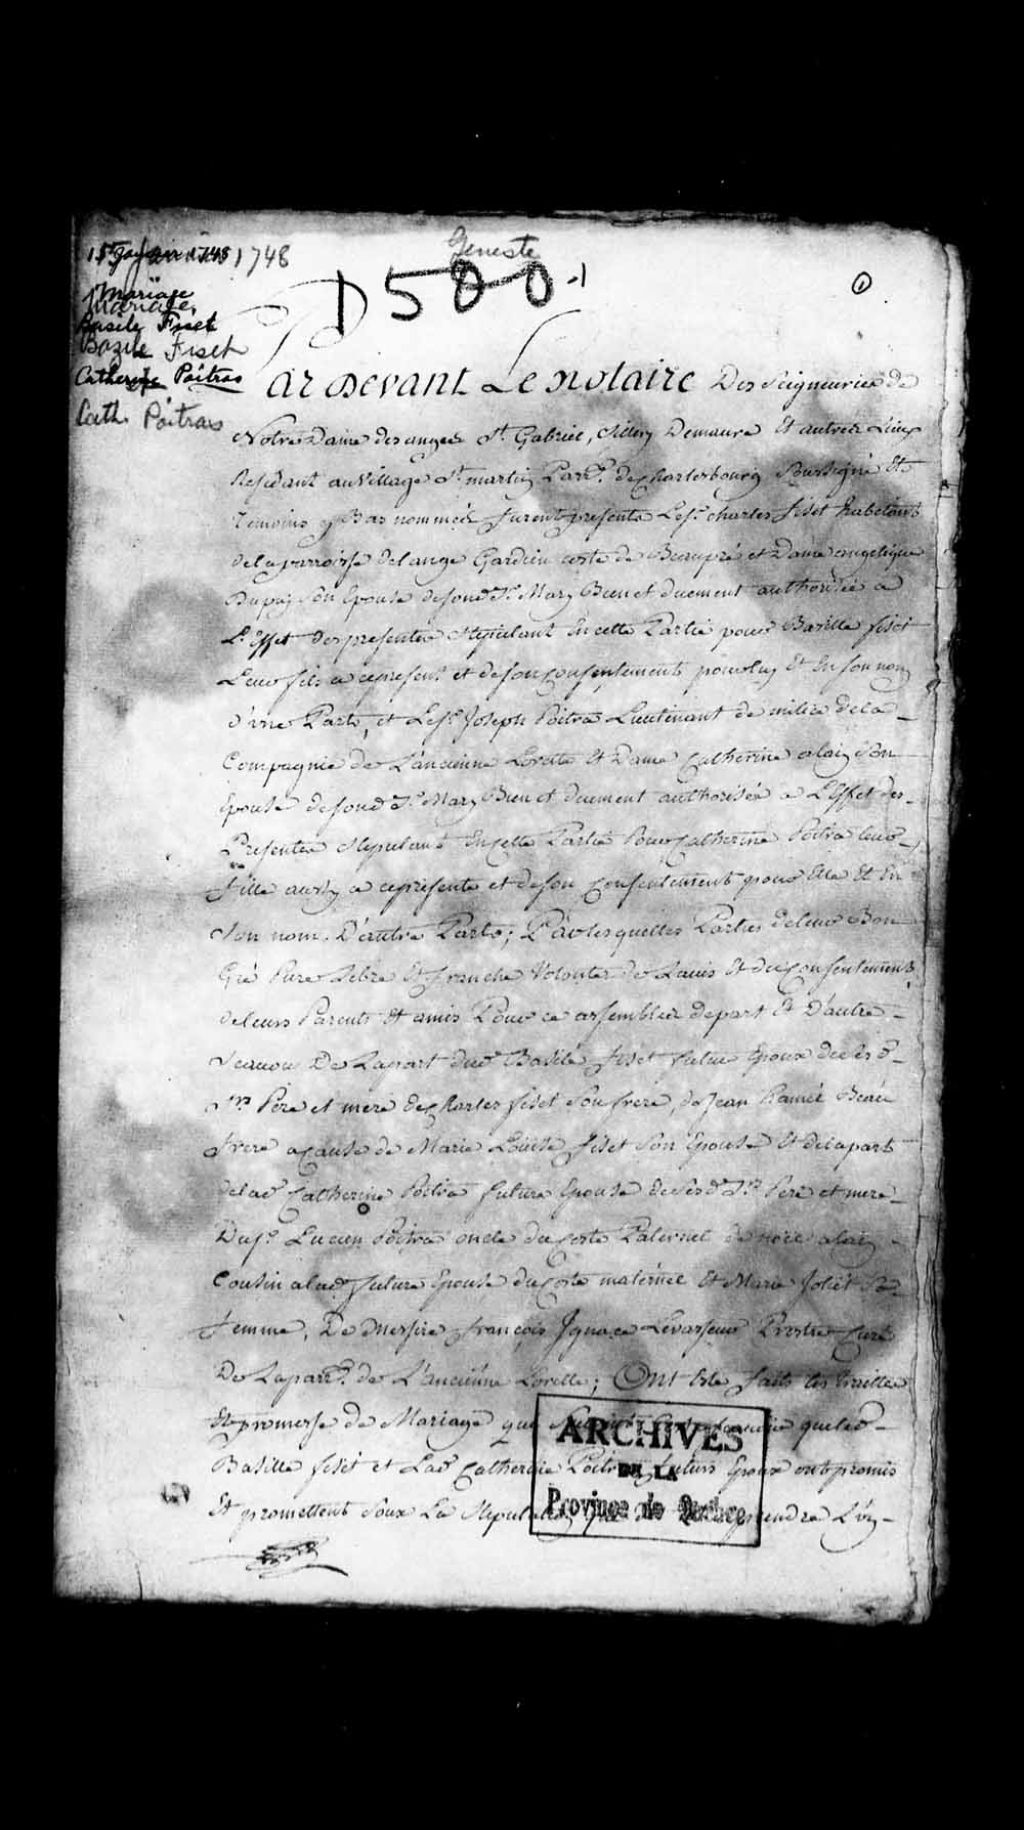 1748
Geneste
D 500.1
1
Mariage
Mariage
Basile Fiset
Bazile Fiset
Catherine Poitras
Cath. Poitras
Pardevant Le Notaire Des Seigneuries de
Notre Dame des anges St. Gabriel, Sillery Demaure Et autres Lieux
Residant au Village St. martin Parr. de Charlesbourg Soussigné Et
Temoins y Bas nommés furent presents Le Sr. charles fiset habetant
de la parroisse de lange Gardien coste de Beaupré et Dame angelique
son Epouse de sond. Sr. Mary Bien et duement authorisée a
L'Effet des presentes Stipulant En cette Partie pour Basille fiset
Leur fils a ce present et de son Consentement pour luy Et En son nom
D'une Part, et Le Sr. Joseph Poitra Lieutenant de milice de la
Compagnie de L'ancienne Lorette Et Dame Catherine alain Son
Epouse de sond. Sr. Mary Bien et duement authorisée a L'Effet des
Presentes Stipulant En cette Partie Pour Catherine Poitra leur
fille aussy a ce presente et de son Consentement pour Elle Et En
Son nom. D'autre Part; Lesquelles Parties de leur Bon
Gré Pure Libre Et franche Volonté de L'avis Et du Consentement
de leurs Parents Et amis Pour ce assemblez de part Et D'autre
Scavoir De La part dud. Basile fiset futur Epoux de ses d.
Srs Pere et mere de Charles fiset Son frere, de Jean Beau
frere a Cause de Marie Louise fiset Son Epouse Et de la part
de lad. Catherine Poitra future Epouse de ses d. Srs Pere et mere
Du Sr. Lucien Poitra oncle du Coste Paternel de alain
Cousin a lad. future Epouse du Coste maternel Et Marie Joliet Sa
femme, De Messire françois Ignace Levasseur Prestre Curé
De La parr. de L'ancienne Lorette; Ont Esté faits les traittes
Et promesse de Mariage qui que led.
Basille fiset et Lad. Catherine Poitra futurs Epoux ont promis
Et promettent Sous La prendre L'un
ARCHIVES
DE LA
Province de Quebec